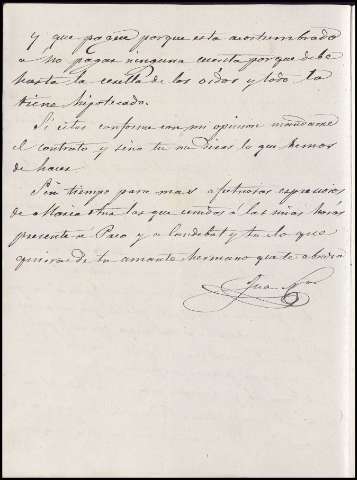 y que paguen porque esta acostumbrado
a no pagar ninguna cuenta porque debe
hasta la cerilla de los oidos y todo lo
tiene hipotecado.
Si estas conforme con mi opinion mandame
el contrato y sino tu me diras lo que hemos
de hacer
Sin tiempo para mas afectuosas espresiones
de Maria Ana las que unidas a las mias harás
presente á Paco y a Landebat y tu lo que
quieras de tu amante hermano que te abraza
Juan